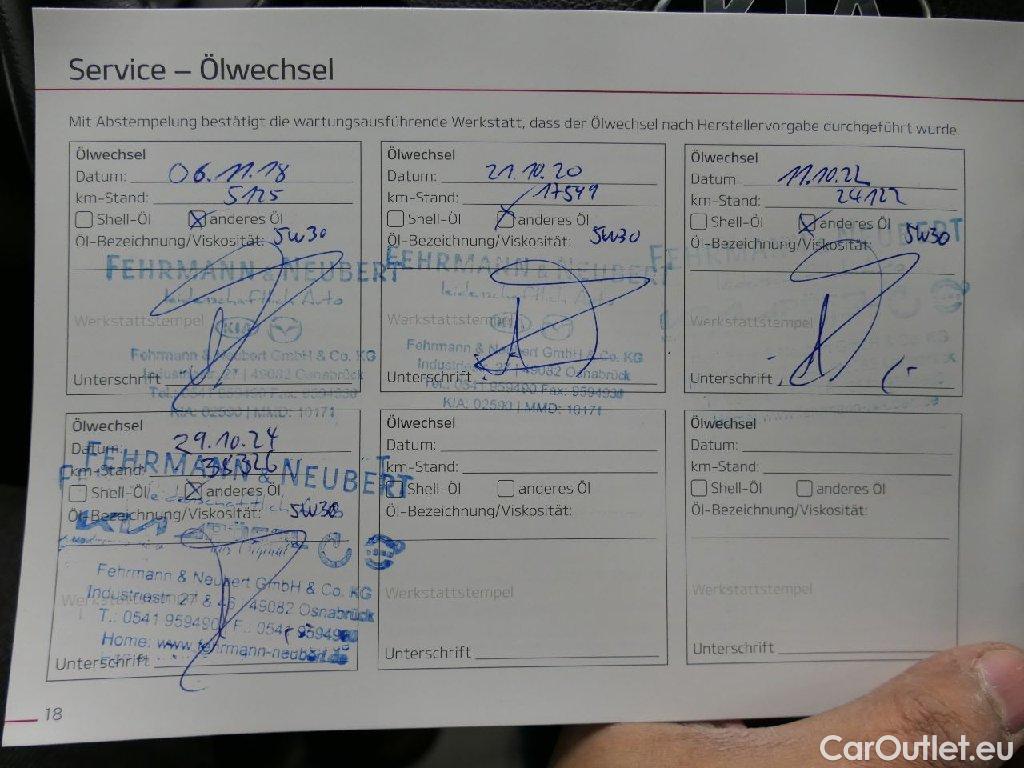 KIA
Service – Ölwechsel
Mit Abstempelung bestätigt die wartungsausführende Werkstatt, dass der Ölwechsel nach Herstellervorgabe durchgeführt wurde
Ölwechsel
Datum: 06.11.18
km-Stand: 5125
Shell-Öl anderes Öl
Öl-Bezeichnung/Viskosität: 5W30
FEHRMANN & NEUBERT
Leidenschaftlich Auto
Werkstattstempel
KIA
Fehrmann & Neubert GmbH & Co. KG
Industriestr. 27 | 49082 Osnabrück
Tel. 0541 959490 Fax: 9594930
KIA: 02590 | MMD: 10171
Unterschrift
Ölwechsel
Datum: 21.10.20
km-Stand: 17549
Shell-Öl anderes Öl
Öl-Bezeichnung/Viskosität: 5W30
FEHRMANN & NEUBERT
Leidenschaftlich Auto
Werkstattstempel
Fehrmann & Neubert GmbH & Co. KG
Industriestr. 27 | 49082 Osnabrück
Tel.: 0541 959490 Fax: 9594930
KIA: 02590 | MMD: 10171
Unterschrift
Ölwechsel
Datum 11.10.22
km-Stand: 24122
Shell-Öl anderes Öl
Öl-Bezeichnung/Viskosität: 5W30
NEUBERT
Werkstattstempel
Unterschrift
Ölwechsel
Datum: 29.10.24
km-Stand:
Shell-Öl anderes Öl
Öl-Bezeichnung/Viskosität: 5W30
FEHRMANN & NEUBERT
KIA
Fehrmann & Neubert GmbH & Co. KG
Industriestr. 27 & 46 | 49082 Osnabrück
T.: 0541 959490 F.: 0541
Home: www.fehrmann-neubert.de
Unterschrift
Ölwechsel
Datum:
km-Stand:
Shell-Öl anderes Öl
Öl-Bezeichnung/Viskosität:
Werkstattstempel
Unterschrift
Ölwechsel
Datum:
km-Stand:
Shell-Öl anderes Öl
Öl-Bezeichnung/Viskosität:
Werkstattstempel
Unterschrift
18
CarOutlet.eu